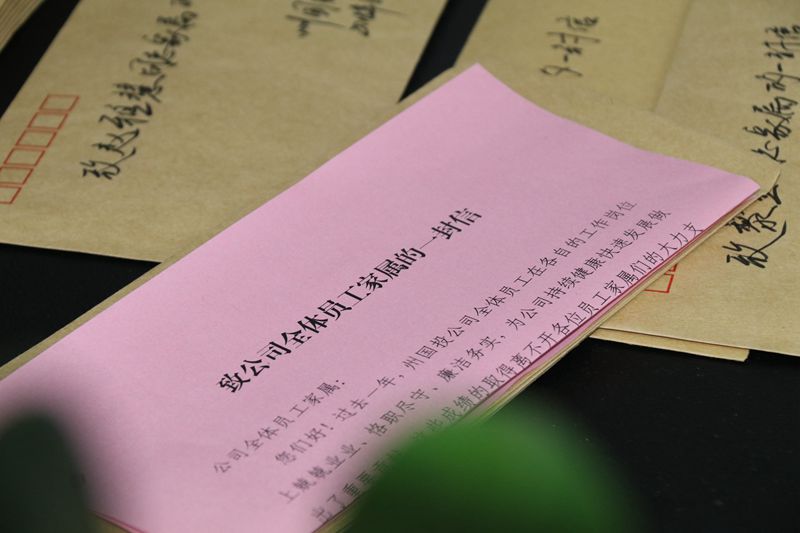 致公司全体员工家属的一封信
公司全体员工家属：
您们好！过去一年，州国投公司全体员工在各自的工作岗位
上兢兢业业、恪职尽守、廉洁务实，为公司持续健康快速发展做
出了重要
成绩的取得离不开各位员工家属们的大力支
致赵雅慧同志家属
州国
的一封信
致黎
家属的一封信